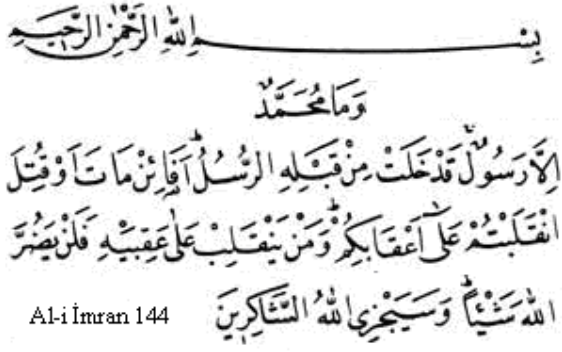 بِسْمِ اللهِ الرَّحْمٰنِ الرَّحِيمِ
وَمَا مُحَمَّدٌ
اِلَّا رَسُولٌۚ قَدْ خَلَتْ مِنْ قَبْلِهِ الرُّسُلُۜ اَفَا۬ئِنْ مَاتَ اَوْ قُتِلَ
انْقَلَبْتُمْ عَلٰٓى اَعْقَابِكُمْۜ وَمَنْ يَنْقَلِبْ عَلٰى عَقِبَيْهِ فَلَنْ يَضُرَّ
اللهَ شَيْئًاۜ وَسَيَجْزِى اللهُ الشَّاكِرِينَ
Al-i İmran 144